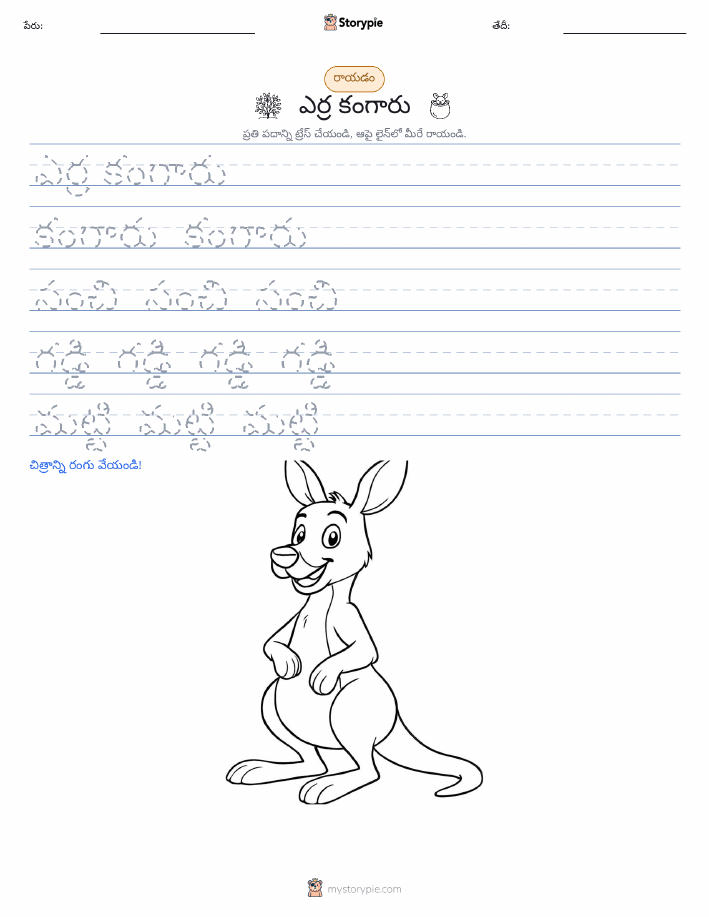 పేరు: Storypie తేదీ:
రాయడం
ఎర్ర కంగారు
ప్రతి పదాన్ని ట్రేస్ చేయండి, ఆపై లైన్‌లో మీరే రాయండి.
ఎర్ర కంగారు
కంగారు కంగారు
సంచి సంచి సంచి
గడ్డి గడ్డి గడ్డి గడ్డి
మట్టి మట్టి మట్టి
చిత్రాన్ని రంగు వేయండి!
mystorypie.com